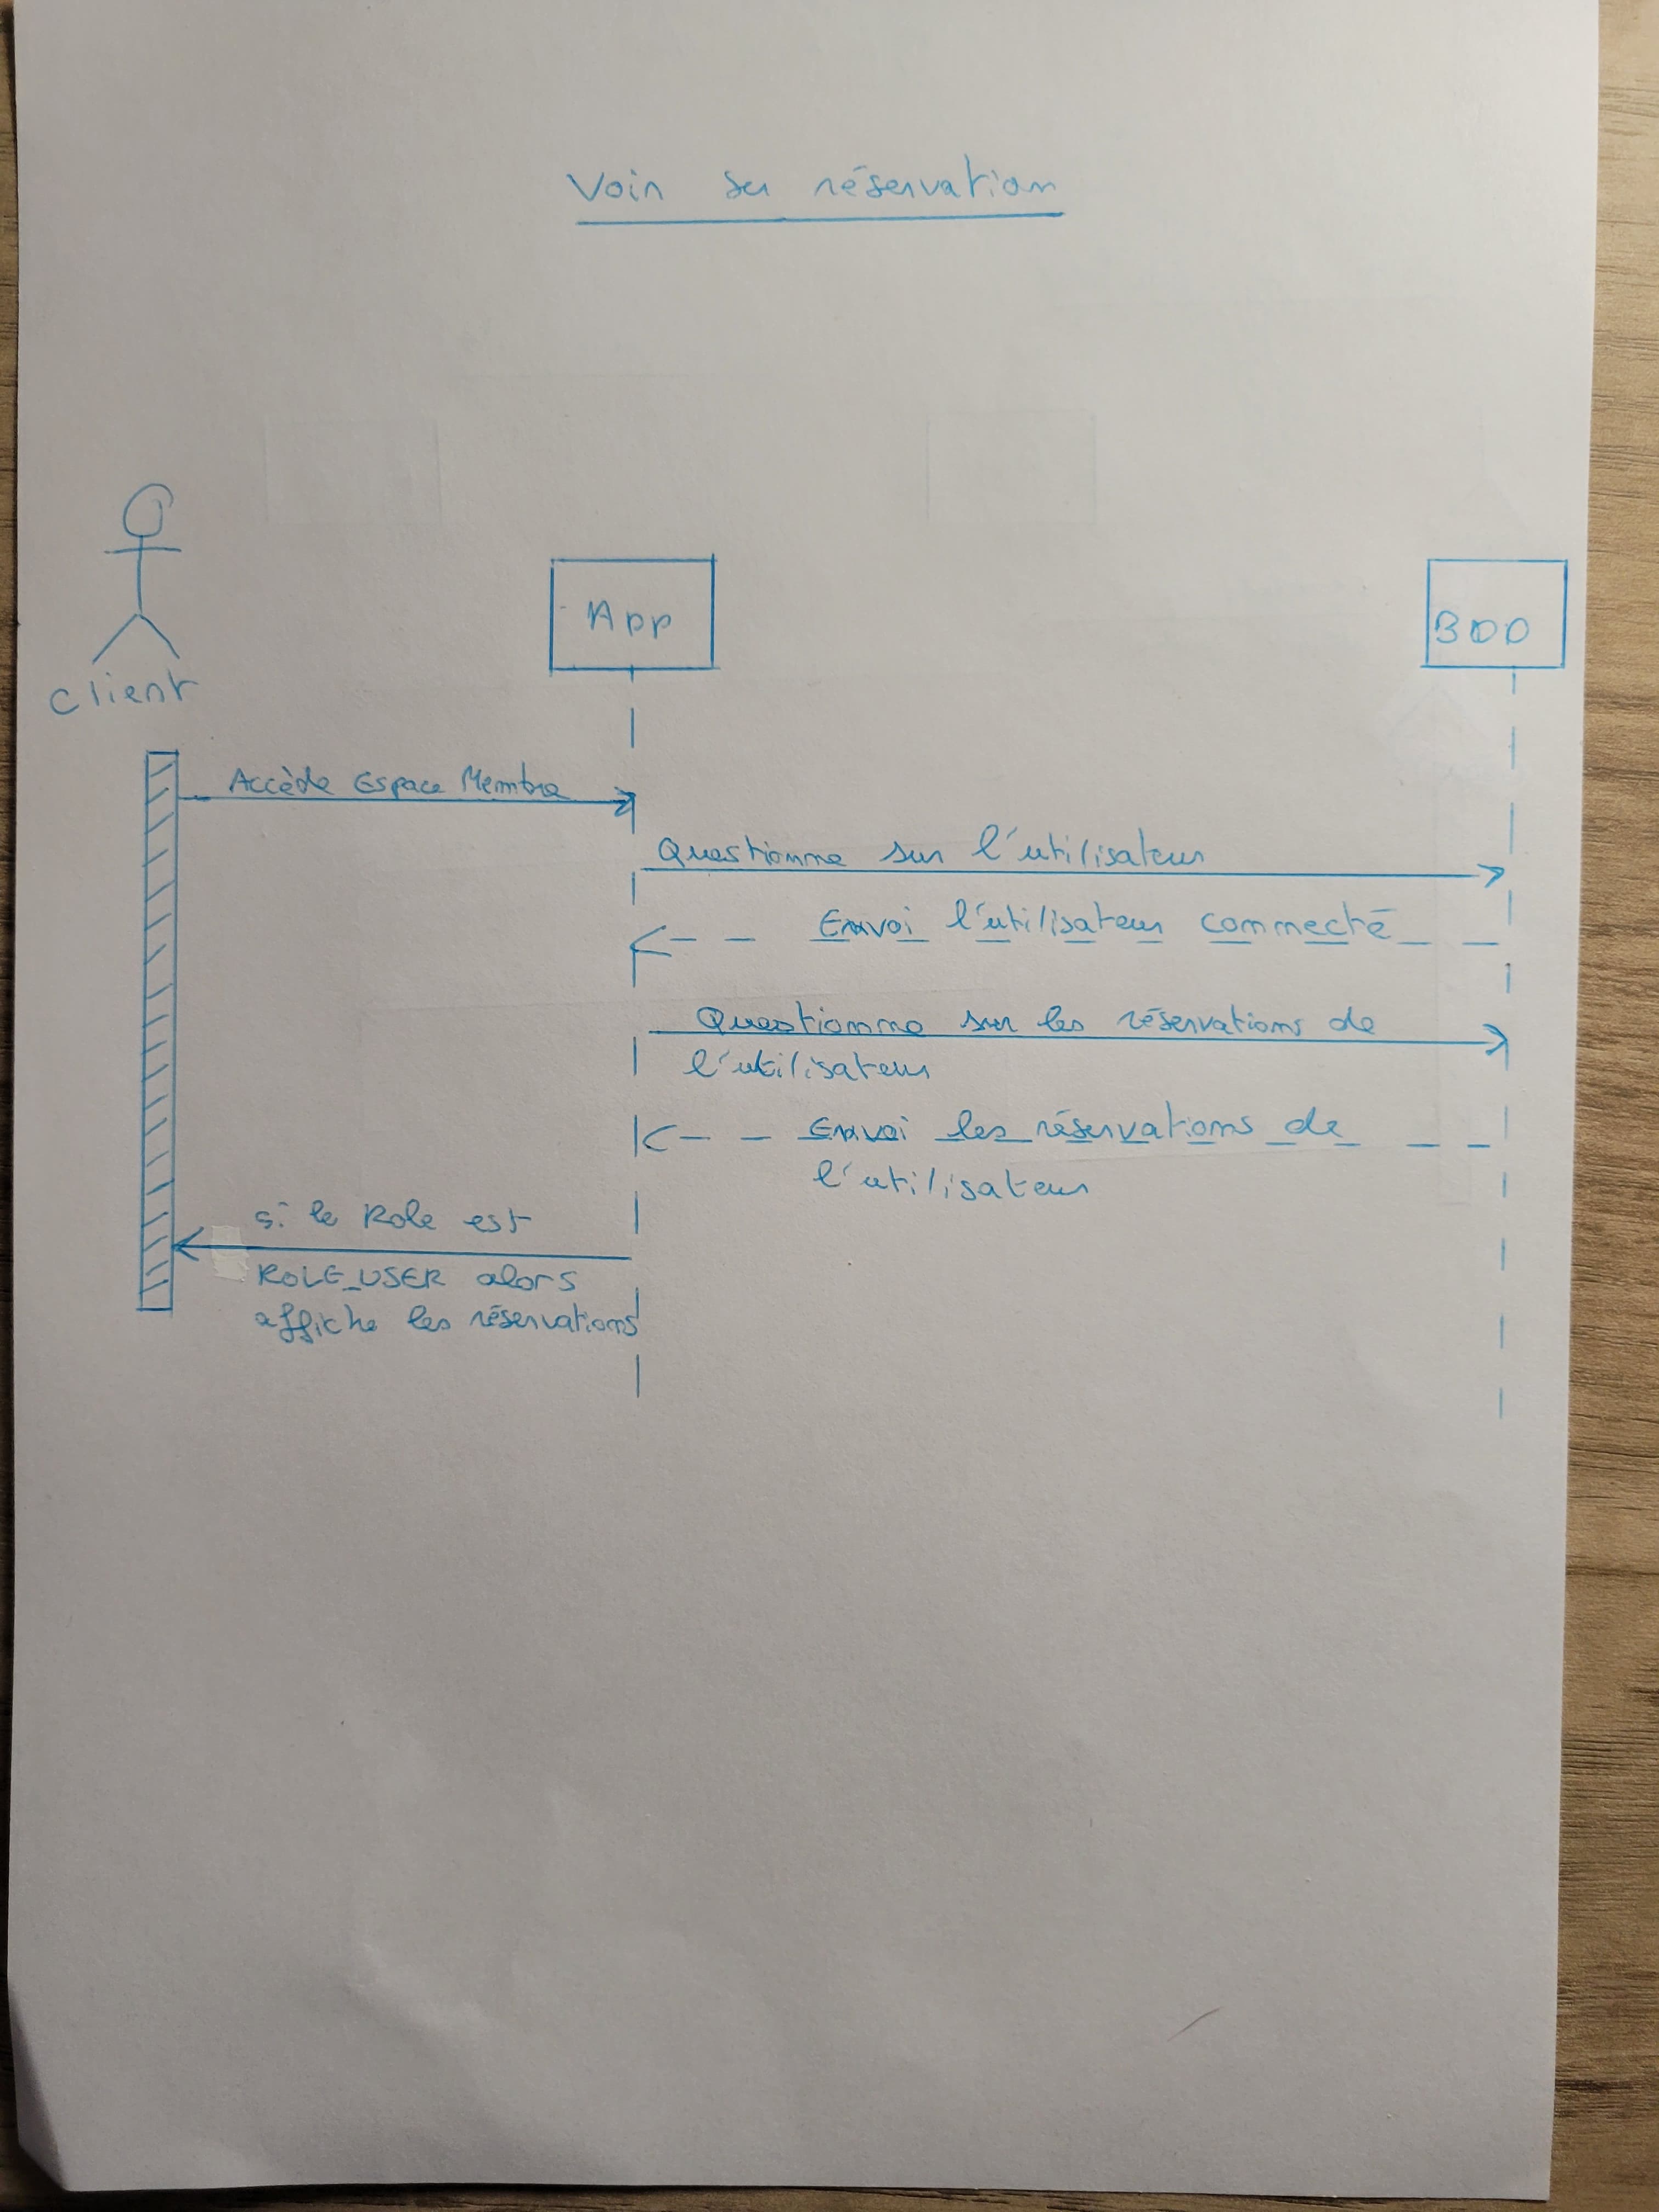 Voir sa réservation
Client
App
BDD
Accède Espace Membre
Questionne sur l'utilisateur
Envoi l'utilisateur connecté
Questionne sur les réservations de
l'utilisateur
Envoi les réservations de
l'utilisateur
si le Role est
ROLE_USER alors
affiche les réservations